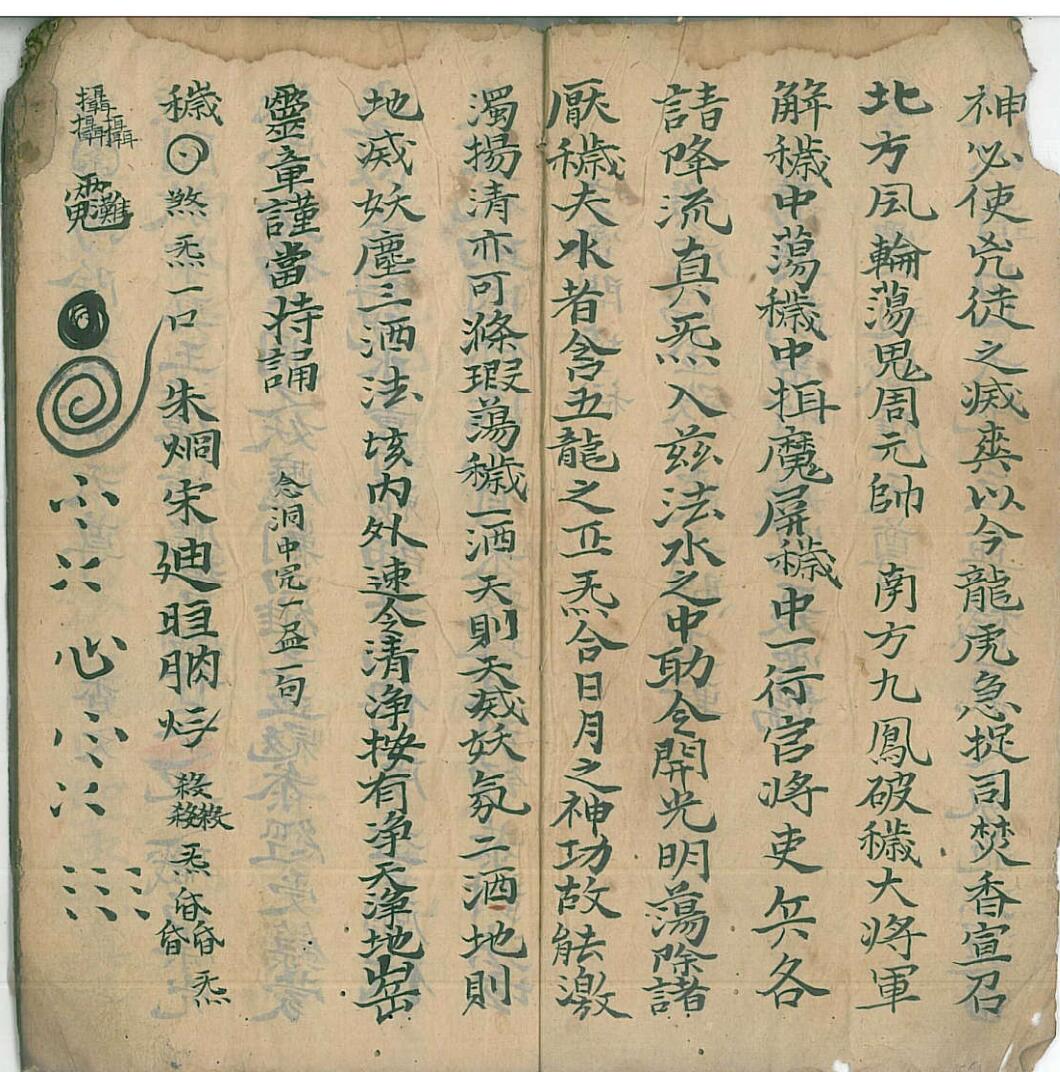 神必使凶徒之滅爽以今龍虎急捉司焚香宣召
北方風輪蕩鬼周元帥南方九鳳破穢大將軍
解穢中蕩穢中揖魔屏穢中一行官將吏兵各
請降流真炁入茲法水之中助令開光明蕩除諸
厭穢夫水者含五龍之正炁合日月之神功故能激
濁揚清亦可滌瑕蕩穢一洒天則天滅妖氛二洒地則
地滅妖塵三洒法垓内外速令清净按有净天净地
靈章謹當持誦 念洞中完一盃一句
穢煞炁一口 朱烱宋廸晅朒 殺殺殺炁
攝攝攝
心